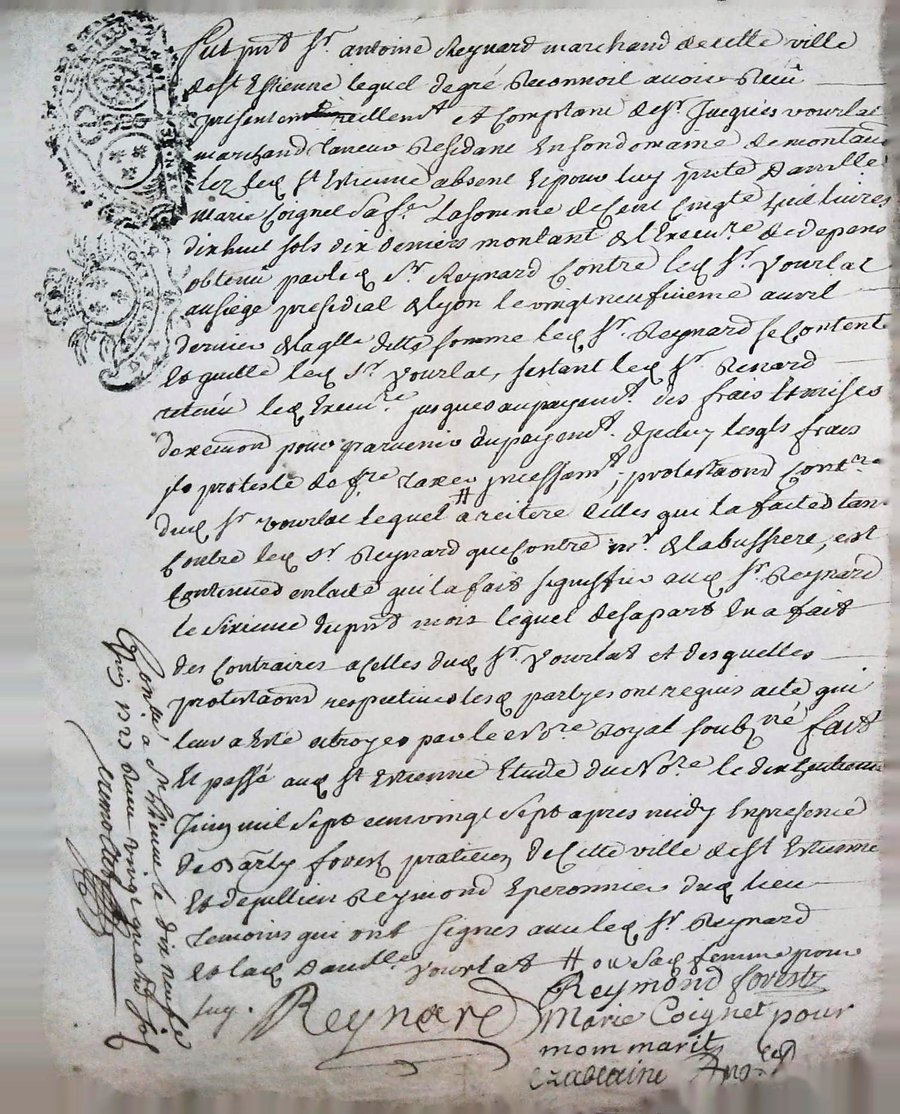 fut pnt Sr antoine Reynard marchand de cette ville
de st Estienne lequel degré Reconnoit avoir Reçu
presentem reellemt et Comptant de Sr Jacques vourlat
marchand Taneur Residant En son domaine de montau
lez led St Etienne absent Et pour luy pnte Damlle
Marie Coignet Sa fe La somme de Cent Cinqte huit livres
dix huit sols dix deniers montant de l'Execure de depens
obtenu par led Sr Reynard Contre led Sr Vourlat
au siege presidial de lyon le vingt neufvieme avril
dernier de laqlle ditte somme led Sr Reynard se Contente
Et quitte led Sr Vourlat, sestant led Sr Renard
retenu led Execure jusques au payemt des frais Et mises
dexeccion pour parvenir au payemt. dycelluy lesqls frais
jl proteste de fre Taxer jncessamt, protestaons Contre
dud Sr vourlat lequel # a reitere Celles qui la faites tan
Contre led Sr Reynard que Contre mr. de labussiere, est
Contenues en lacte quil a fait signiffier aud Sr. Reynard
le sixieme du pnt mois lequel de sa part En a fait
des Contraires a celles dud Sr. Vourlat et desquelles
protestaons respectives lesd partyes ont requis acte qui
leur a Esté octroyé par le Nore Royal soubzné fait
Et passé aud St Etienne Etude du Nore le dix huitieme
Juin mil sept cent vingt sept apres midy En presence
de Barly forest praticien de Cette ville de st Etienne
Et de jullien Reymond Eperonnier dud lieu
Temoins qui ont signes avec led Sr. Reynard
Et lad Damlle Vourlat # ou sad femme pour
luy.
Reynard
Reymond forest
Marie Coignet pour
mom marit
Conllé à St Etienne le dix neufe
Juin 1727 Reçu vingt quatre sols